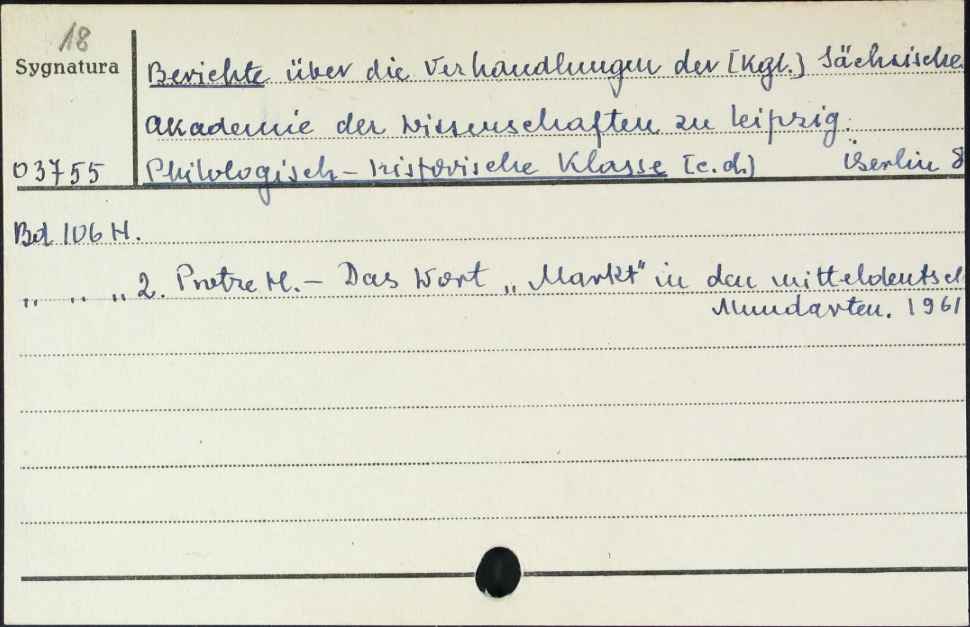 18
Sygnatura
Berichte über die Verhandlungen der [Kgl.] Sächsische
Akademie der Wissenschaften zu Leipzig.
03755 Philologisch-historische Klasse [c.d.] Berlin 8
Bd 106 H.
„ „ „ 2. Protze H. – Das Wort „Markt" in den mitteldeutsch
Mundarten. 1961